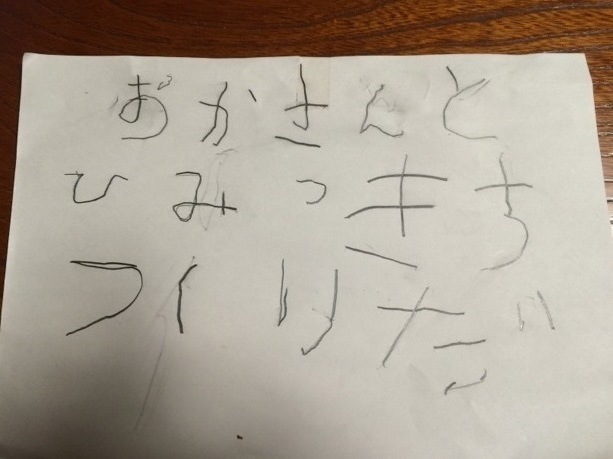 おかさんと
ひみっきち
つくりだ